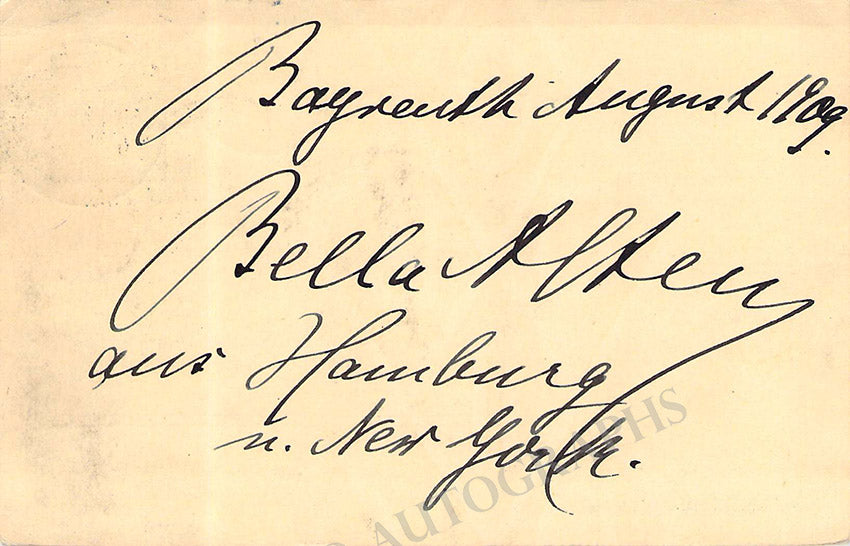 Bayreuth August 1909.
Bella Alten
aus Hamburg
u. New York.
AUTOGRAPHS